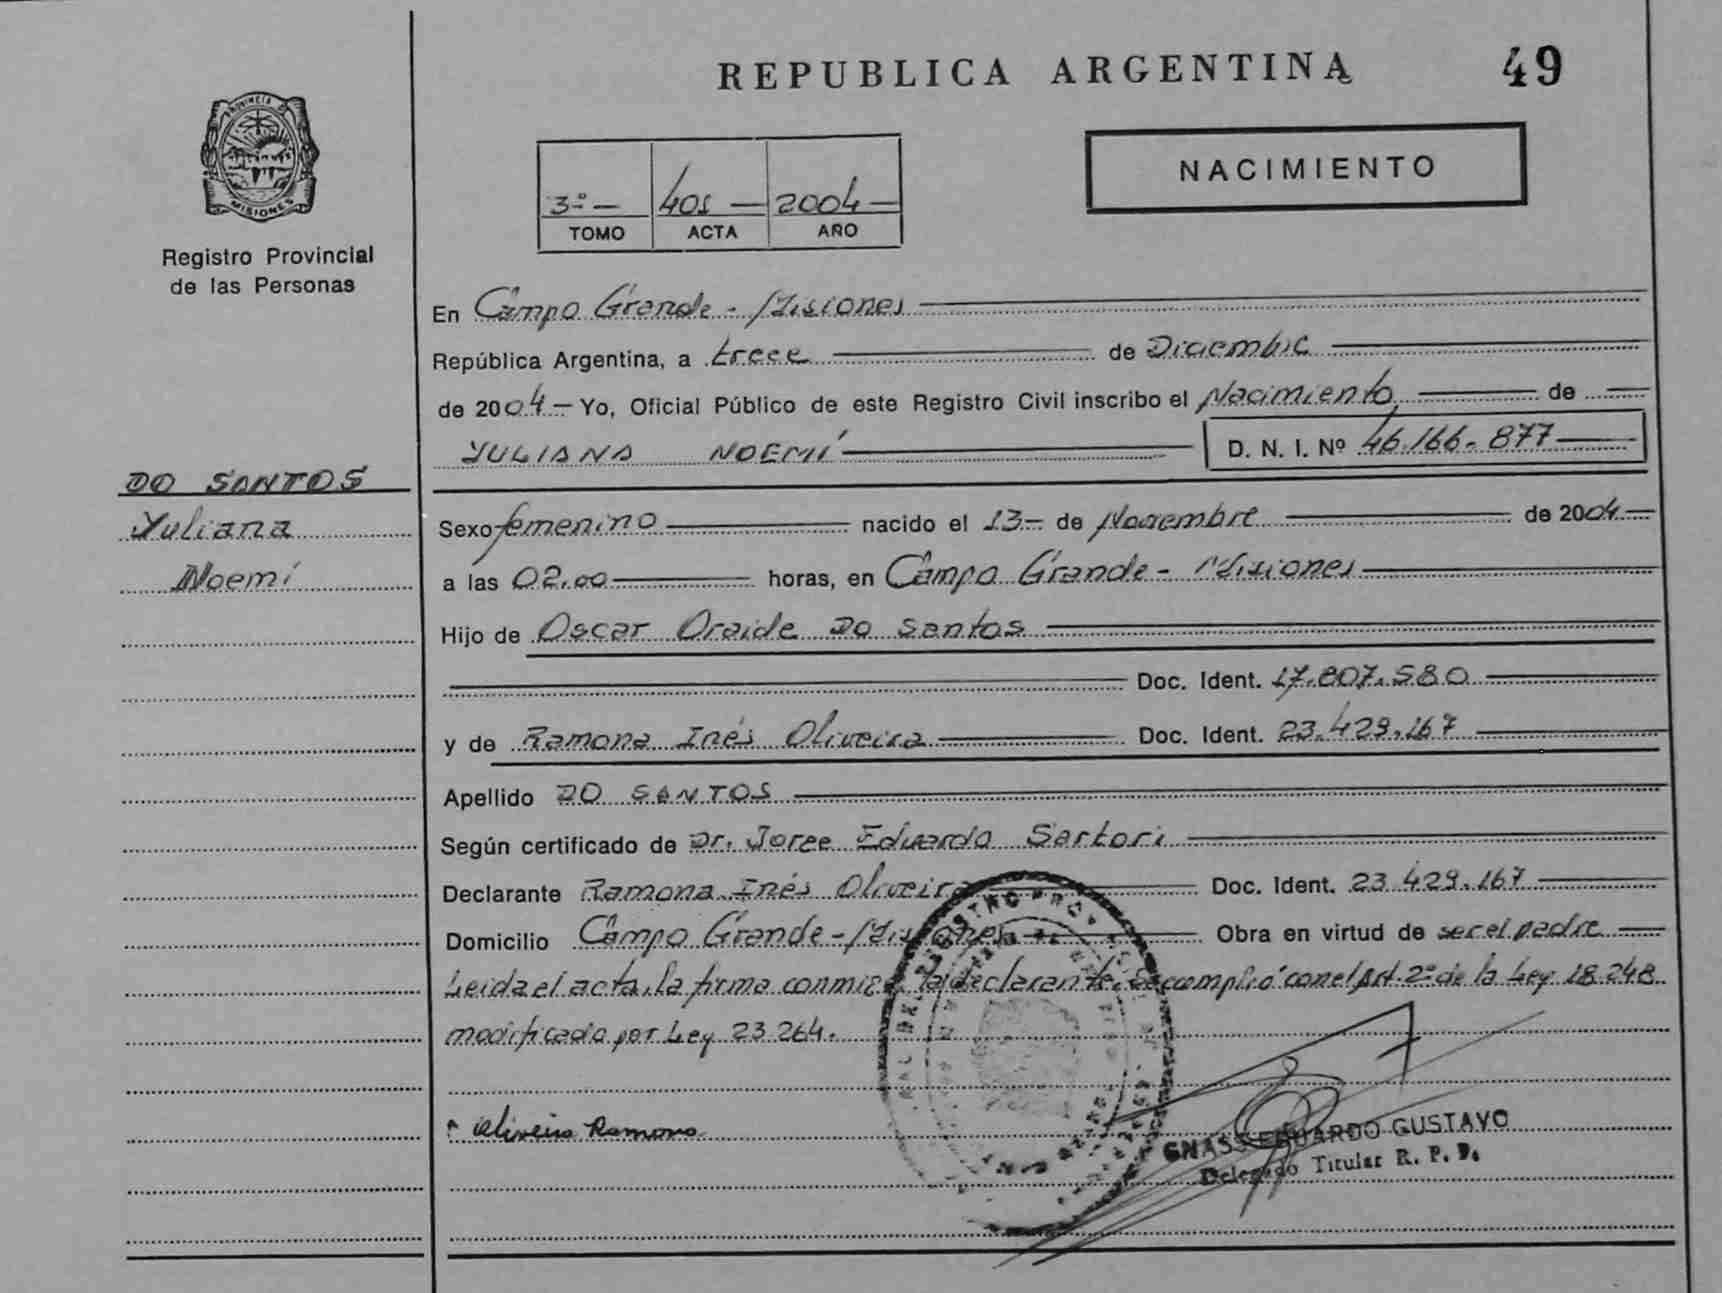 REPUBLICA ARGENTINA 49
PROVINCIA DE
MISIONES
Registro Provincial
de las Personas
NACIMIENTO
3º - 401 - 2004 -
TOMO ACTA AÑO
En Campo Grande - Misiones
República Argentina, a trece de Diciembre
de 2004 - Yo, Oficial Público de este Registro Civil inscribo el Nacimiento de
YULIANA NOEMÍ D. N. I. Nº 46.166.877
DO SANTOS
Yuliana
Noemí
Sexo femenino nacido el 13 - de Noviembre de 2004 -
a las 02,00 horas, en Campo Grande - Misiones
Hijo de Oscar Oraide Do Santos
Doc. Ident. 17.807.580
y de Ramona Inés Oliveira Doc. Ident. 23.429.167
Apellido DO SANTOS
Según certificado de Dr. Jorge Eduardo Sartori
Declarante Ramona Inés Oliveira Doc. Ident. 23.429.167
Domicilio Campo Grande - Misiones Obra en virtud de ser el padre
Leida el acta, la firma conmigo la declarante. Se cumplió con el Art. 2º de la Ley 18.248
modificada por Ley 23.264.
Oliveira Ramona
GNASS EDUARDO GUSTAVO
Delegado Titular R. P. P.